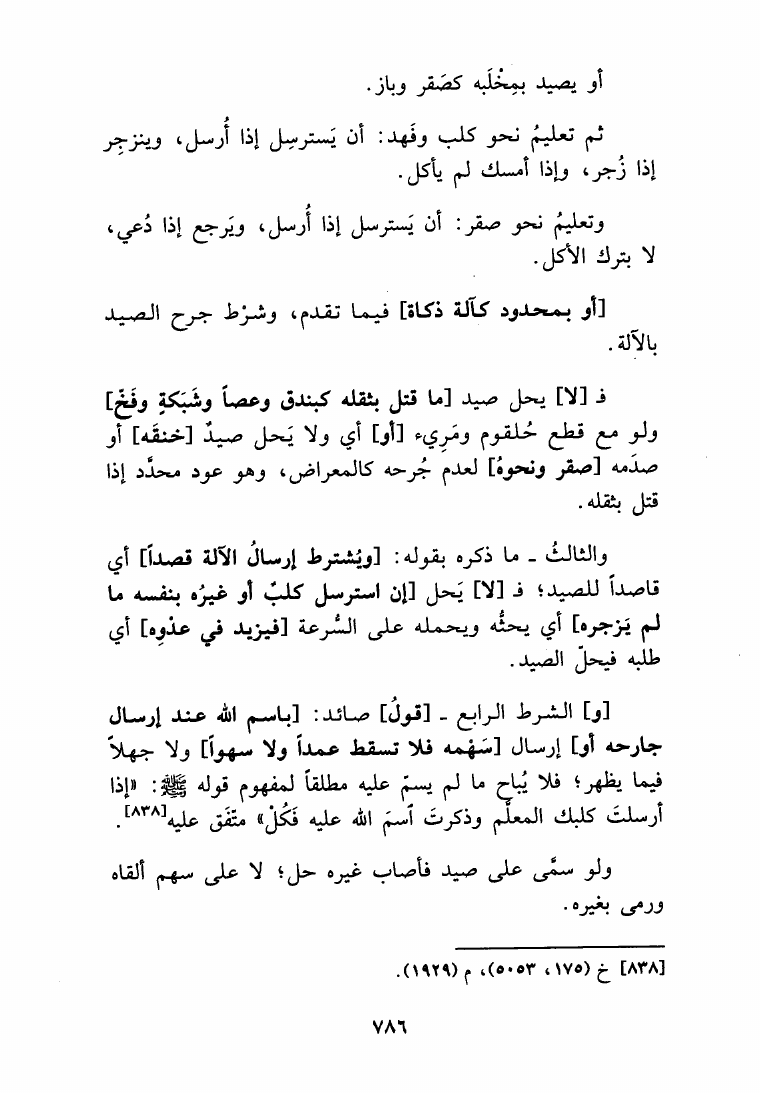 أو يصيد بمِخْلَبه كصَقر وباز.
ثم تعليمُ نحو كلب وفَهد: أن يَسترسِل إذا أُرسل، وينزجِر
إذا زُجر، وإذا أمسك لم يأكل.
وتعليمُ نحو صقر: أن يَسترسل إذا أُرسل، ويَرجع إذا دُعي،
لا بترك الأكل.
[أو بمحدود كآلة ذكاة] فيما تقدم، وشرْط جرح الصيد
بالآلة.
فـ [لا] يحل صيد [ما قتل بثقله كبندق وعصاً وشَبَكةٍ وفَخّ]
ولو مع قطع حُلقوم ومَرِيء [أو] أي ولا يَحل صيدٌ [خنقَه] أو
صدَمه [صقر ونحوهُ] لعدم جُرحه كالمعراض، وهو عود محدَّد إذا
قتل بثقله.
والثالثُ ـ ما ذكره بقوله: [ويُشترط إرسالُ الآلة قصداً] أي
قاصداً للصيد؛ فـ [لا] يَحل [إن استرسل كلبٌ أو غيرُه بنفسه ما
لم يَزجره] أي يحثُّه ويحمله على السُّرعة [فيزيد في عدْوِه] أي
طلبه فيحلّ الصيد.
[و] الشرط الرابع ـ [قولُ] صائد: [باسم الله عند إرسال
جارحه أو] إرسال [سَهْمه فلا تسقط عمداً ولا سهواً] ولا جهلاً
فيما يظهر؛ فلا يُباح ما لم يسمّ عليه مطلقاً لمفهوم قوله ﷺ: «إذا
أرسلتَ كلبك المعلَّم وذكرتَ ٱسمَ الله عليه فَكُلْ» متّفَق عليه[٨٣٨].
ولو سمَّى على صيد فأصاب غيره حل؛ لا على سهم ألقاه
ورمى بغيره.
[٨٣٨] خ (١٧٥، ٥٠٥٣)، م (١٩٢٩).
٧٨٦